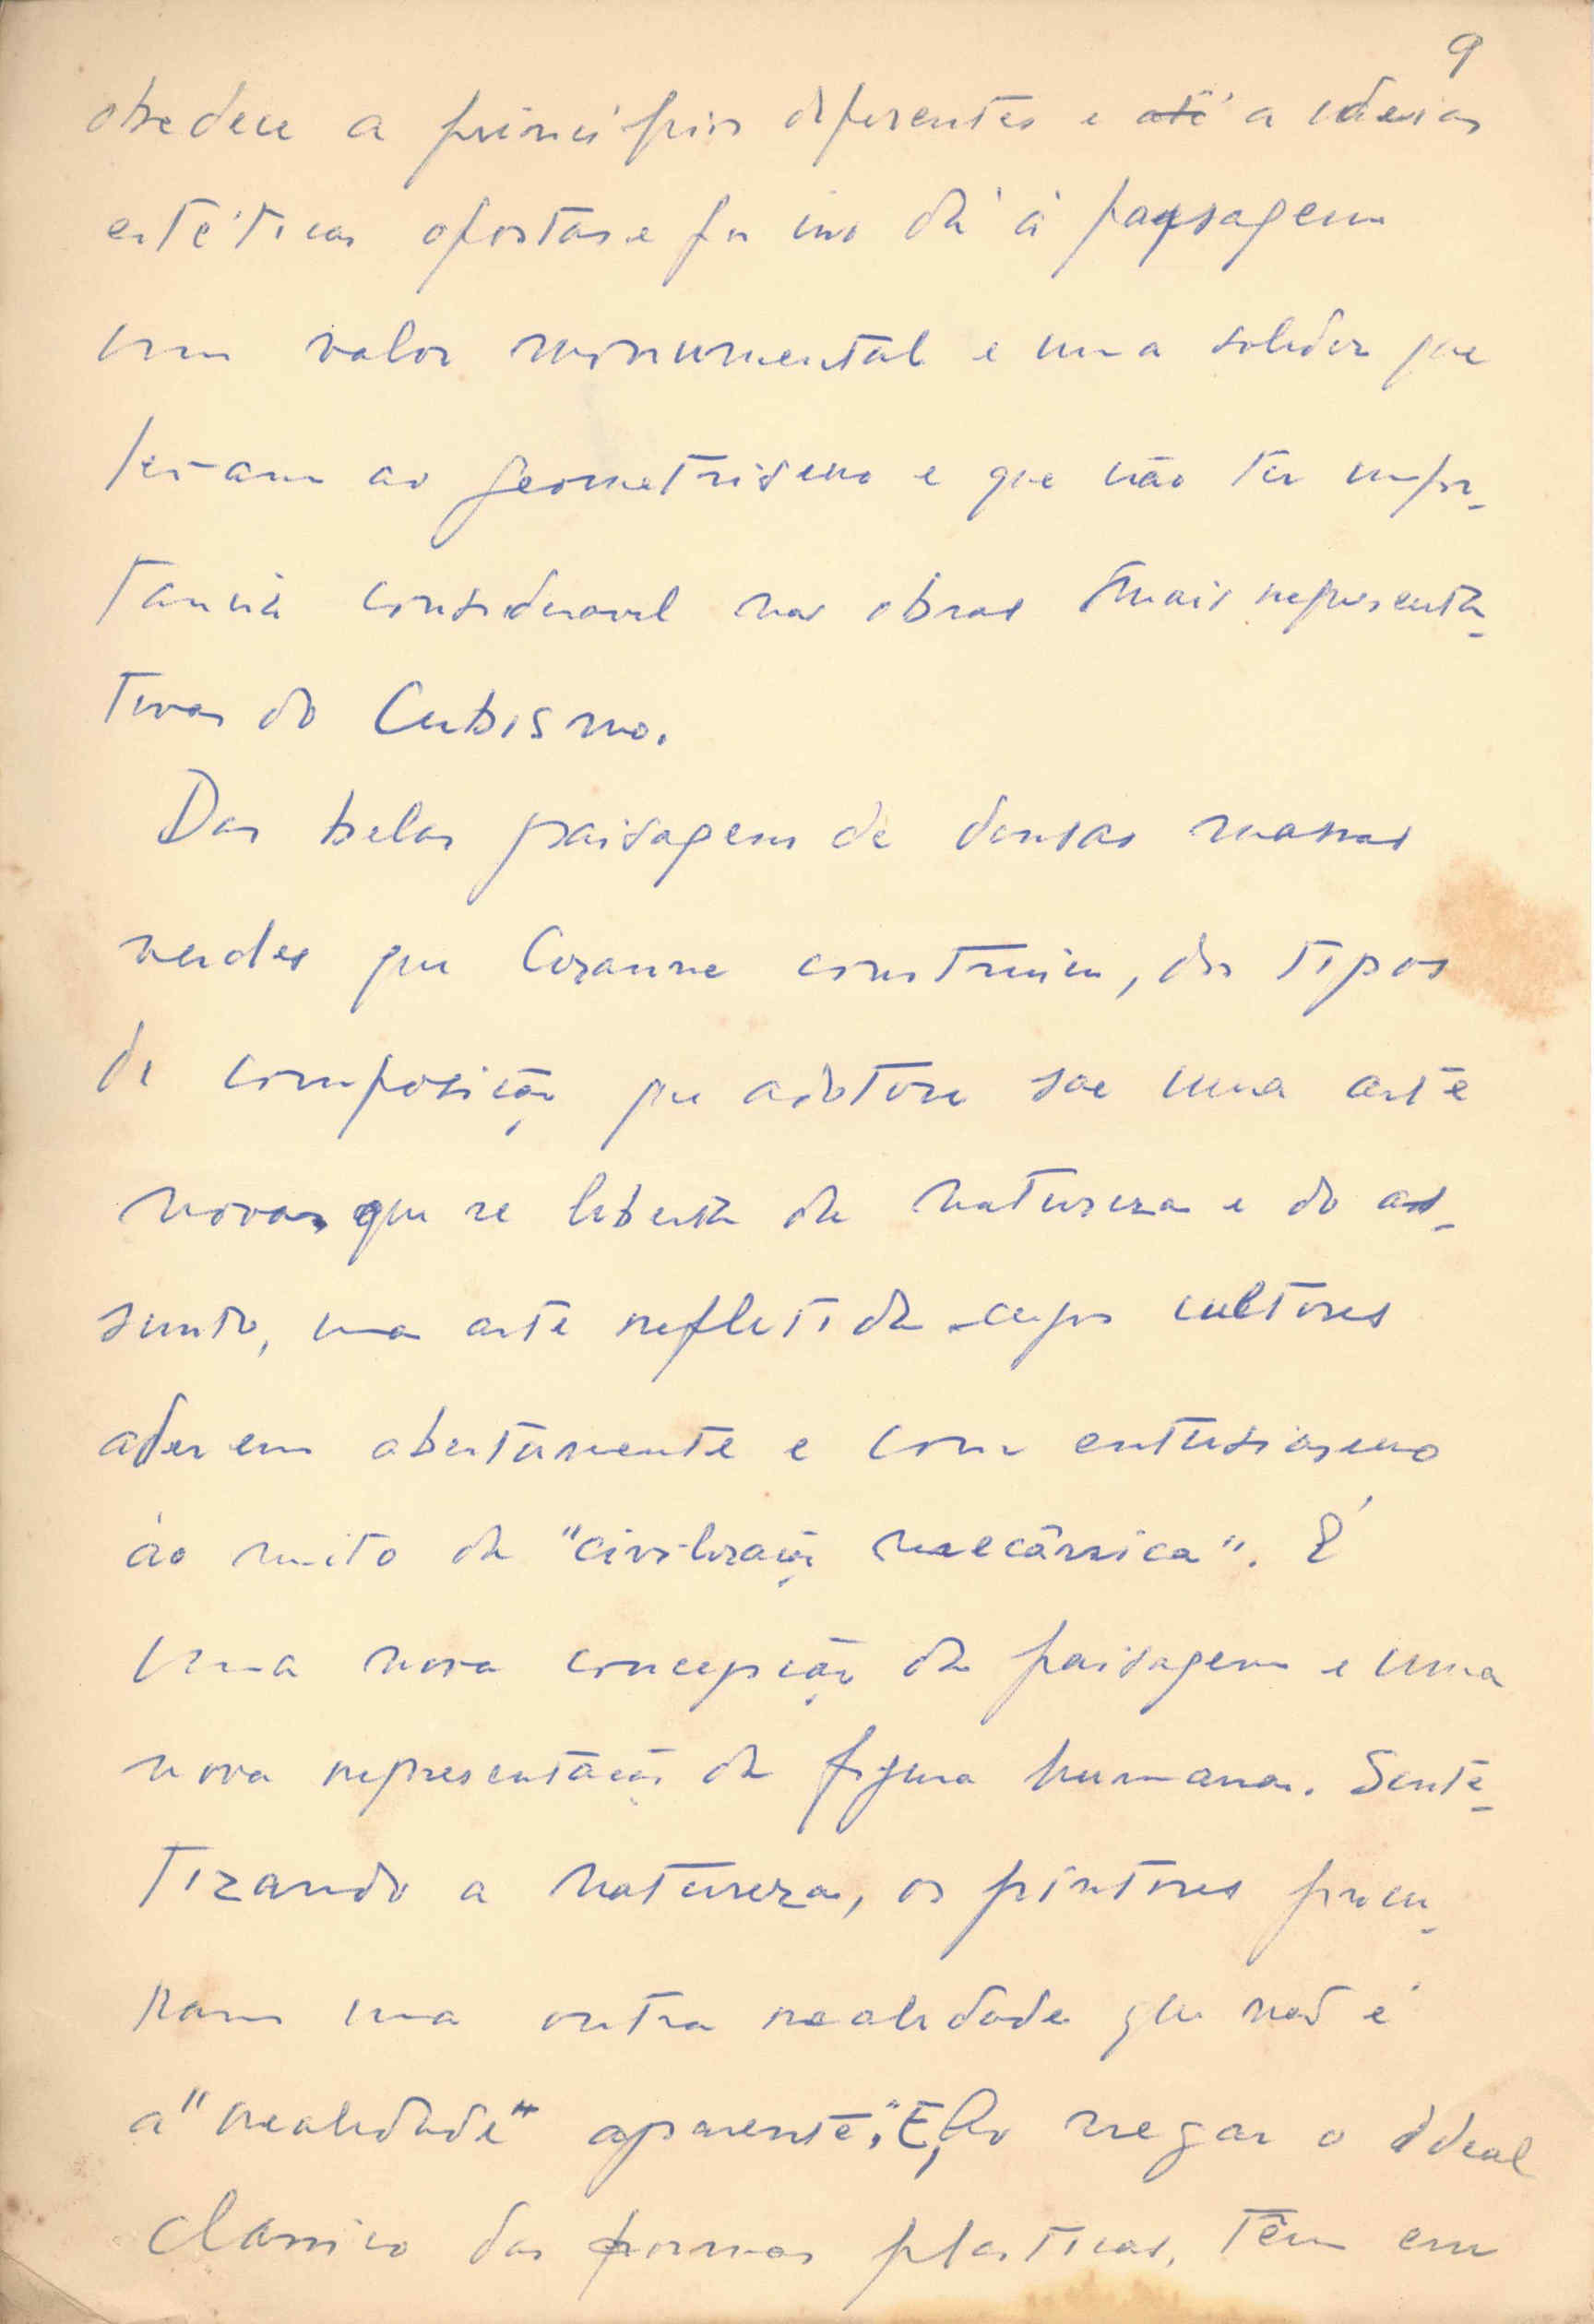 9
obedece a princípios diferentes e até a ideias
estéticas opostas e por isso dá à paysagem
um valor monumental e uma solidez que
levam ao geometrismo e que vão ter impor-
tancia consideravel nas obras mais representa-
tivas do Cubismo.
Das belas paisagens de densas massas
verdes que Cezanne construiu, dos tipos
de composição que adotou sae uma arte
nova que se liberta da natureza e do as-
sunto, uma arte refletida cujos cultores
aderem abertamente e com entusiasmo
ao mito da "civilização mecânica". É
uma nova concepção da paisagem e uma
nova representação da figura humana. Sente-
tizando a natureza, os pintores procu-
ram uma outra realidade que não é
a "realidade" aparente." E, ao negar o ideal
classico das formas plasticas, têm em